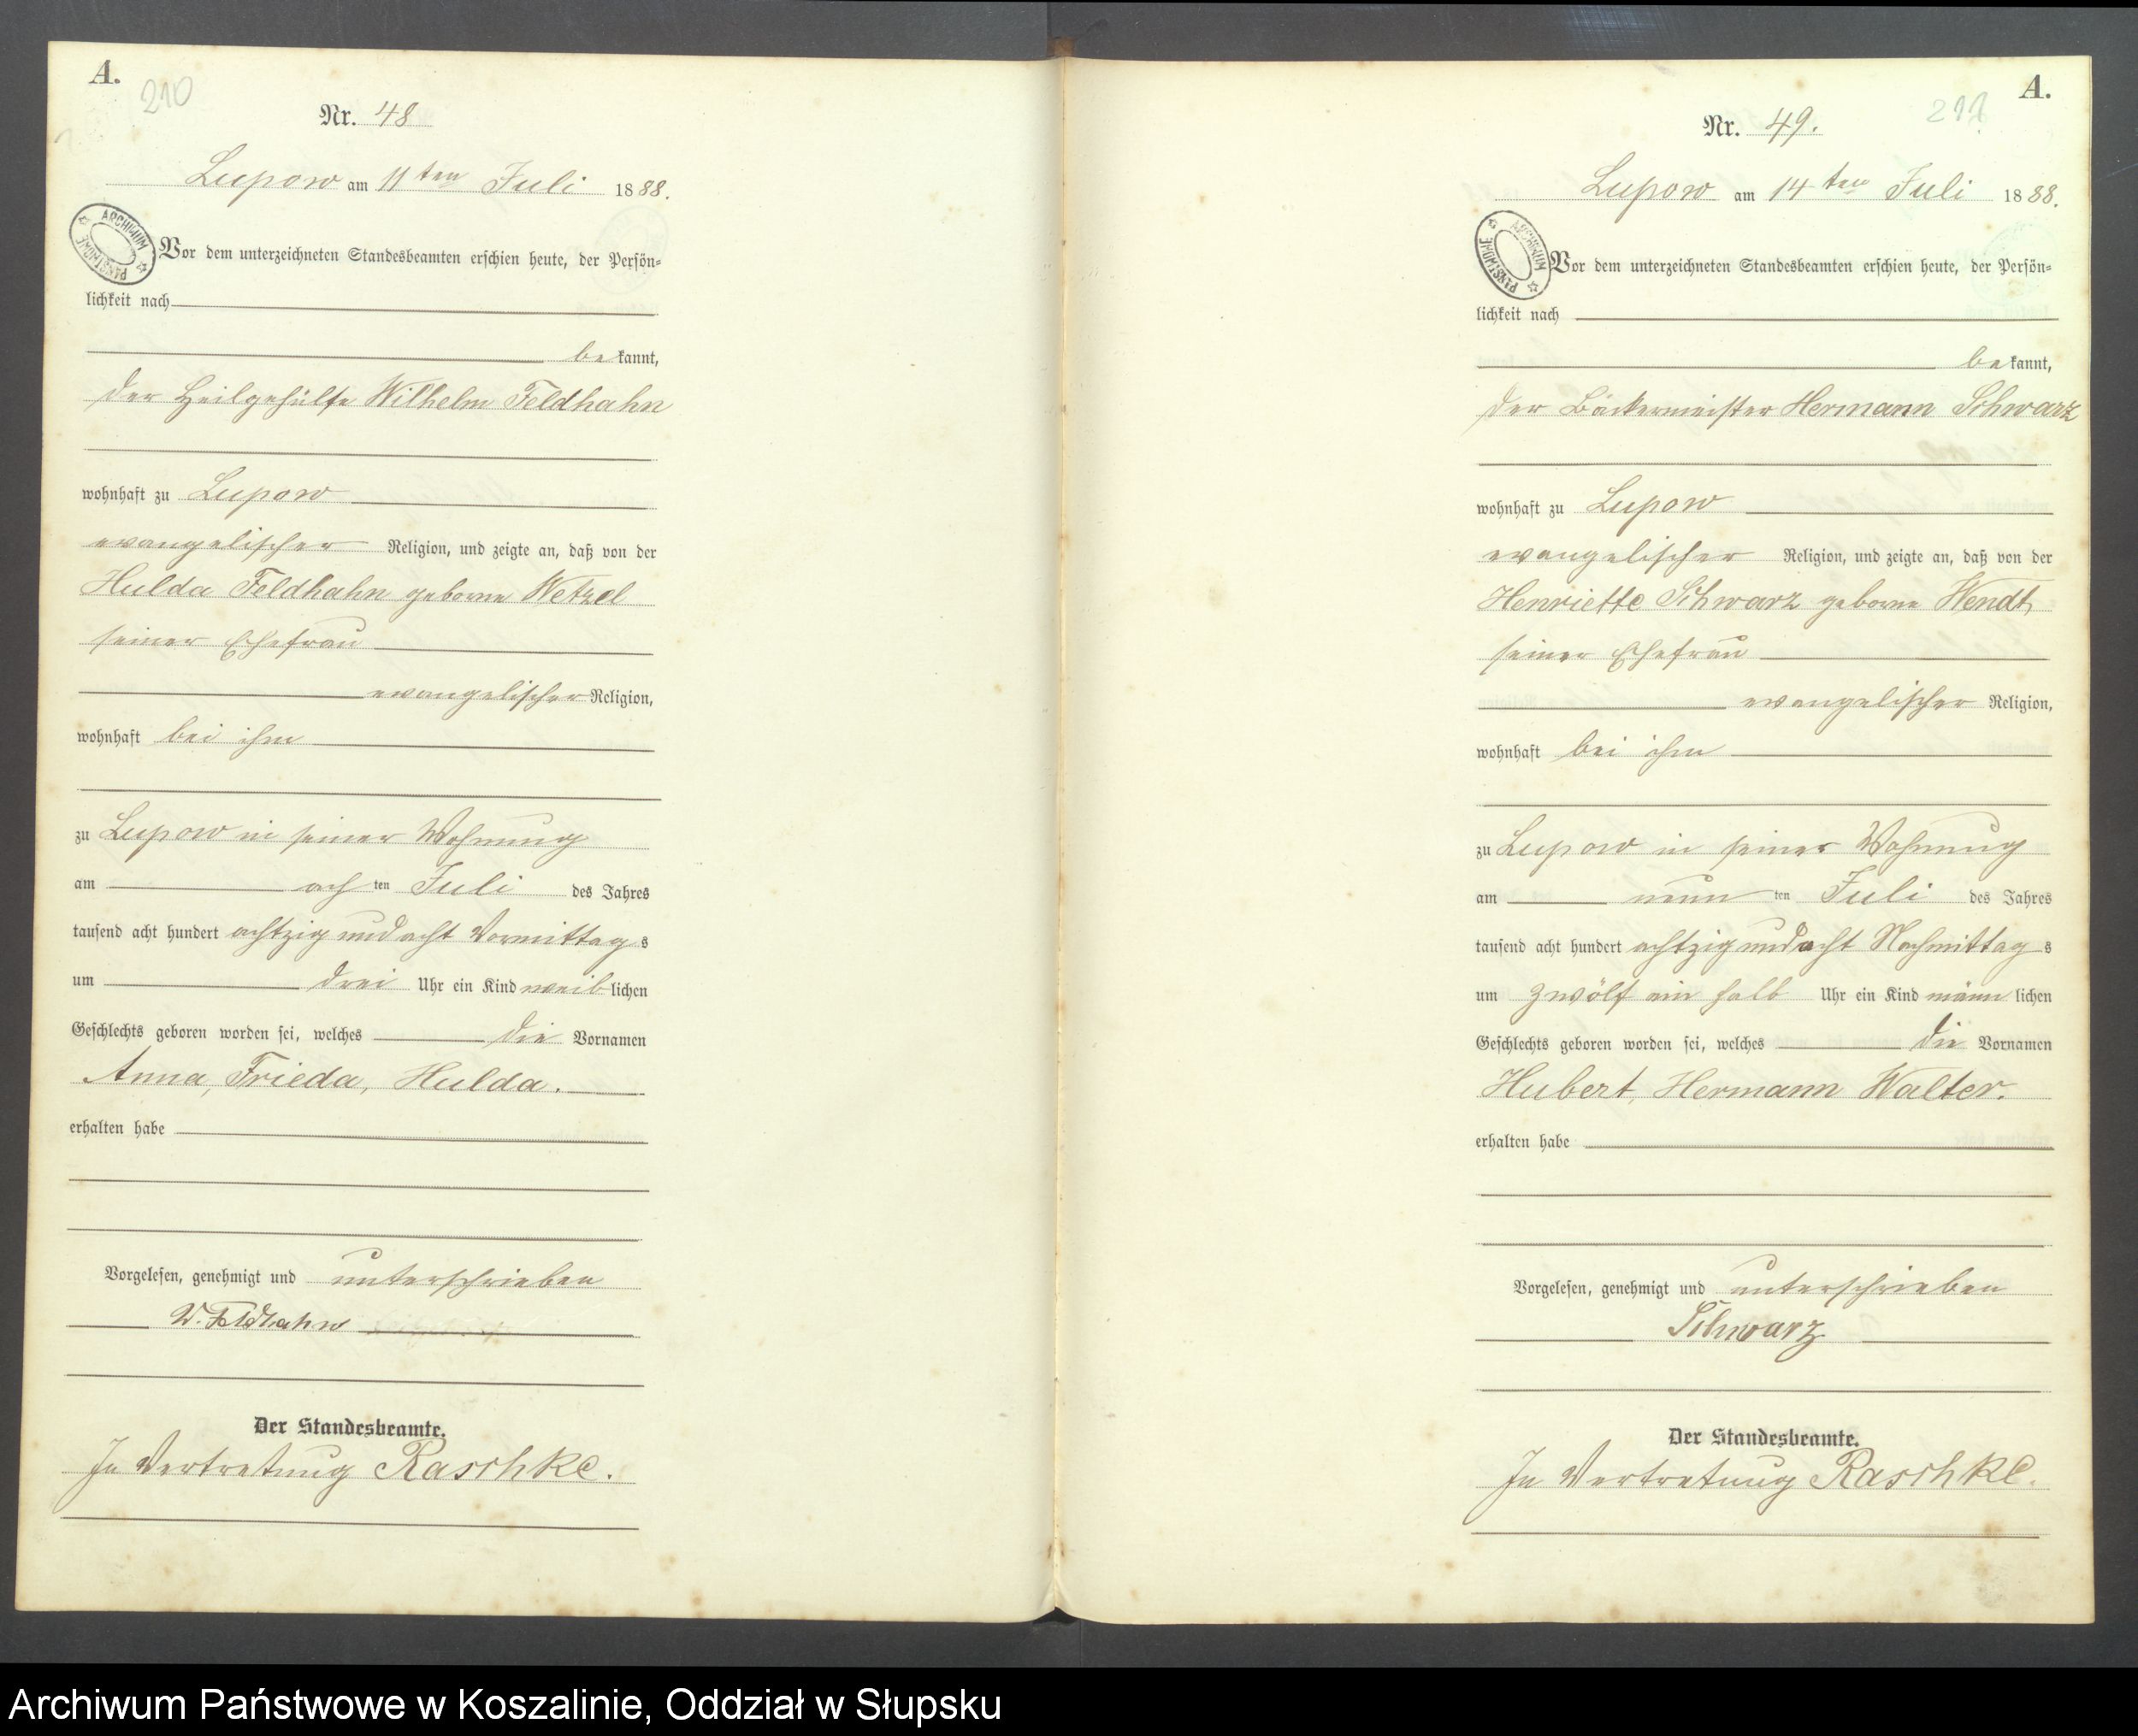 A.
210
Nr. 48
Lupow am 11ten Juli 1888.
ARCHIWUM PAŃSTWOWE
Vor dem unterzeichneten Standesbeamten erschien heute, der Persön-
lichkeit nach
bekannt,
der Heilgehülfe Wilhelm Feldhahn
wohnhaft zu Lupow
evangelischer Religion, und zeigte an, daß von der
Hulda Feldhahn geborne Wetzel
seiner Ehefrau
evangelischer Religion,
wohnhaft bei ihm
zu Lupow in seiner Wohnung
am achten Juli des Jahres
tausend acht hundert achtzig und acht Vormittags
um drei Uhr ein Kind weiblichen
Geschlechts geboren worden sei, welches die Vornamen
Anna, Frieda, Hulda.
erhalten habe
Vorgelesen, genehmigt und unterschrieben
W. Feldhahn
Der Standesbeamte.
In Vertretung Raschke.
A.
211
Nr. 49.
Lupow am 14ten Juli 1888.
ARCHIWUM PAŃSTWOWE
Vor dem unterzeichneten Standesbeamten erschien heute, der Persön-
lichkeit nach
bekannt,
der Bäckermeister Hermann Schwarz
wohnhaft zu Lupow
evangelischer Religion, und zeigte an, daß von der
Henriette Schwarz geborne Wendt,
seiner Ehefrau
evangelischer Religion,
wohnhaft bei ihm
zu Lupow in seiner Wohnung
am neunten Juli des Jahres
tausend acht hundert achtzig und acht Nachmittags
um zwölf ein halb Uhr ein Kind männlichen
Geschlechts geboren worden sei, welches die Vornamen
Hubert, Hermann Walter.
erhalten habe
Vorgelesen, genehmigt und unterschrieben
Schwarz
Der Standesbeamte.
In Vertretung Raschke.
Archiwum Państwowe w Koszalinie, Oddział w Słupsku